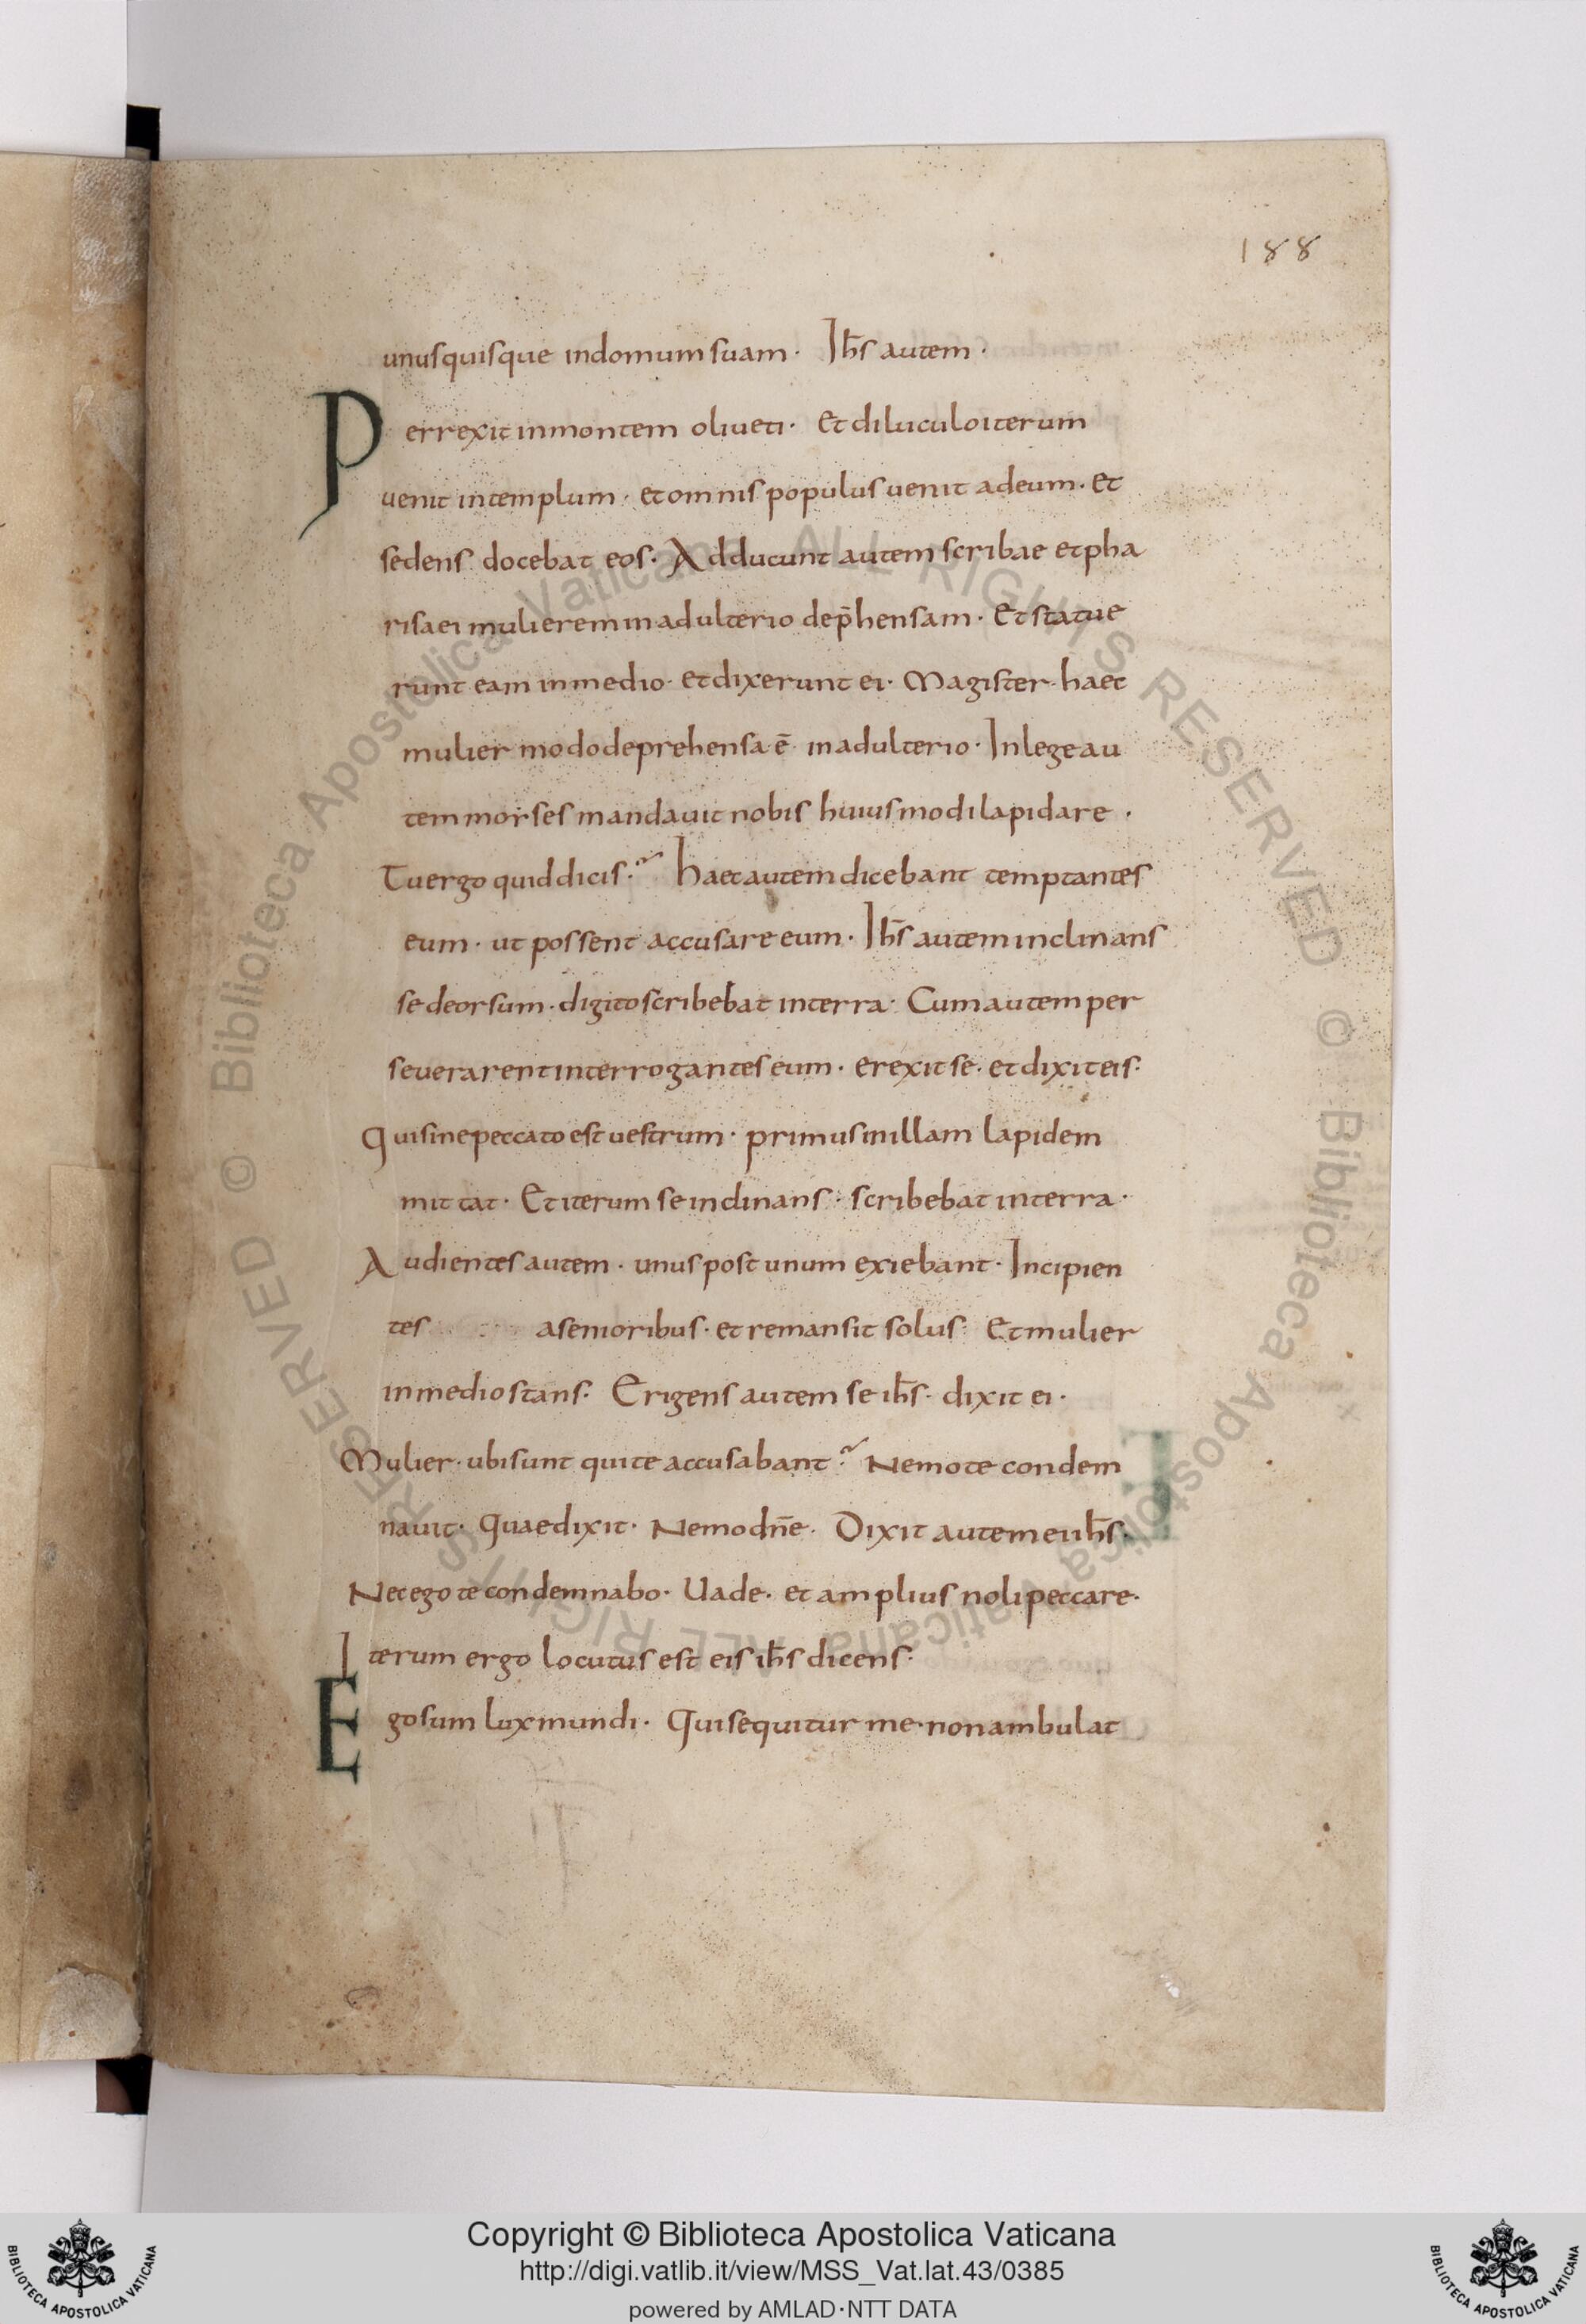 188
unusquisque indomum suam · Ihs̄ autem ·
Perrexit inmontem oliueti · Et diluculo iterum
uenit intemplum · et omnis populus uenit adeum · et
sedens docebat eos · Adducunt autem scribae et pha
risaei mulierem in adulterio dep̄hensam · Et statue
runt eam inmedio · et dixerunt ei · Magister · haec
mulier modo deprehensa ē in adulterio · In lege au
tem moyses mandauit nobis huiusmodi lapidare ·
Tu ergo quid dicis? haec autem dicebant temptantes
eum · ut possent accusare eum · Ihs̄ autem inclinans
se deorsum · digito scribebat interra · Cum autem per
seuerarent interrogantes eum · erexit se · et dixit eis ·
Qui sine peccato est uestrum · primus in illam lapidem
mittat · Et iterum se inclinans · scribebat interra ·
Audientes autem · unus post unum exiebant · Incipien
tes a senioribus · et remansit solus · Et mulier
in medio stans · Erigens autem se ihs̄ · dixit ei ·
Mulier · ubi sunt qui te accusabant? Nemo te condem
nauit · Quae dixit · Nemo dn̄e · Dixit autem ei ihs̄ ·
Nec ego te condemnabo · Uade · et amplius noli peccare ·
Iterum ergo locutus est eis ihs̄ dicens ·
Ego sum lux mundi · Qui sequitur me · non ambulat
© Biblioteca Apostolica Vaticana ALL RIGHTS RESERVED © Biblioteca Apostolica Vaticana ALL RIGHTS RESERVED
Copyright © Biblioteca Apostolica Vaticana
http://digi.vatlib.it/view/MSS_Vat.lat.43/0385
powered by AMLAD·NTT DATA
BIBLIOTECA APOSTOLICA VATICANA
BIBLIOTECA APOSTOLICA VATICANA